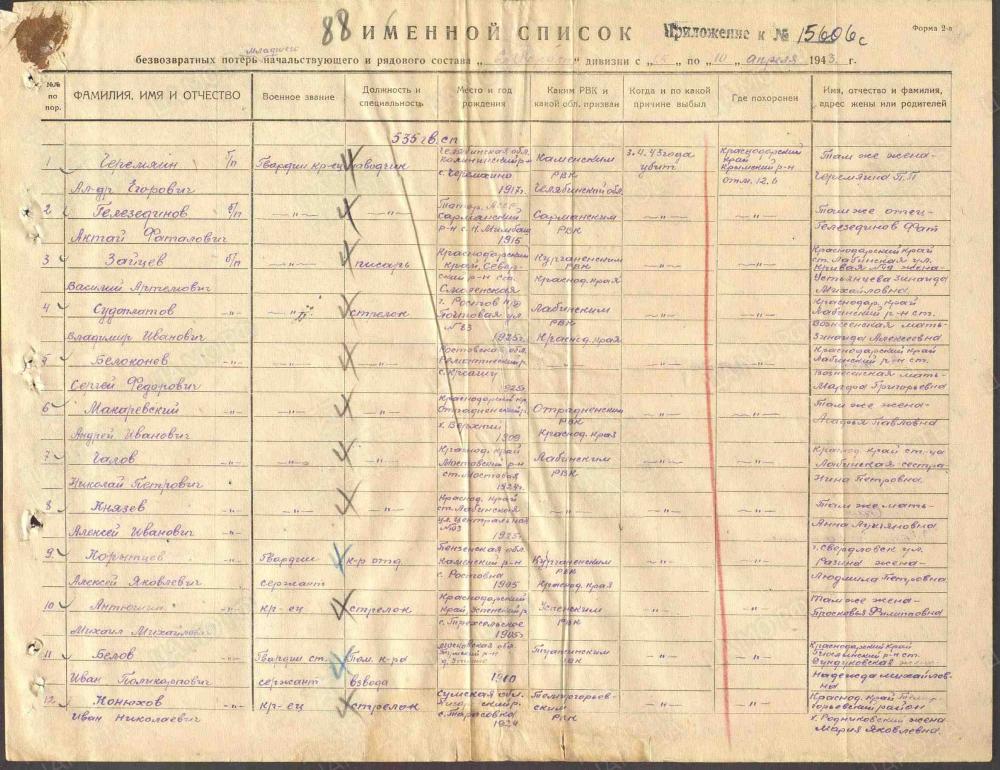 88 ИМЕННОЙ СПИСОК Приложение к № 15606с
Форма 2-а
младшего
безвозвратных потерь начальствующего и рядового состава „ “ дивизии с „ “ по „10“ апреля 1943 г.
№№ по пор.
ФАМИЛИЯ, ИМЯ И ОТЧЕСТВО
Военное звание
Должность и специальность
Место и год рождения
Каким РВК и какой обл. призван
Когда и по какой причине выбыл
Где похоронен
Имя, отчество и фамилия, адрес жены или родителей
535 гв. сп
1 Черемякин б/п
Ал-др Егорович
Гвардии кр-ец
Челябинская обл.
с.
1917г.
Каменским РВК
Челябинской обл.
3.4.43 года убит
Краснодарский край Крымский р-н отм. 12.6
Там же жена-
Черемякина П.П.
2 Гелезединов б/п
Актай Фаталович
—„— —„—
Татар. АССР Сармановский
р-н с. Н.
1915
Сармановским РВК
—„— —„—
Там же отец-
Гелезединов Фат
3 Зайцев б/п
Василий Артемович
—„— писарь
Краснодарский край, Северский р-н ст. Смоленская
Курганенским РВК
Краснод. края
—„— —„—
Краснодарский край ст. Лабинская ул. Кривая жена-
Устьянцева Зинаида Михайловна
4 Судоплатов
Владимир Иванович
—„— стрелок
г. Ростов н/Д Почтовая ул. № 83
1925г.
Лабинским РВК
Краснод. края
—„— —„—
Краснодар. край Лабинский р-н ст. Вознесенская мать-
Зинаида Алексеевна
5 Белоконев -„-
Сергей Федорович
—„— —„—
Ростовская обл.
1925г.
—„—
—„— —„—
Краснодарский край Лабинский р-н ст. Вознесенская мать-
Марфа Григорьевна
6 Макаревский -„-
Андрей Иванович
—„— —„—
Краснодарский кр. Отрадненский р.
х. Верхний
1909
Отрадненским РВК
Краснод. края
—„— —„—
Там же жена-
Агафья Павловна
7 Чалов -„-
Николай Петрович
—„— —„—
Краснод. край Мостовский р-н
ст. Мостовая
1924г.
Лабинским РВК
—„— —„—
Краснод. край ст-ца Лабинская сестра-
Нина Петровна
8 Князев -„-
Алексей Иванович
—„— —„—
Краснод. край ст. Лабинская
ул. Центральная
1925г.
—„—
—„— —„—
Там же мать-
Анна Лукьяновна
9. -„-
Алексей Яковлевич
Гвардии сержант
к-р отд
Пензенская обл. Каменский р-н
с.
1905
Курганенским РВК
Краснод. края
—„— —„—
г. Свердловск ул. Разина жена-
Людмила Петровна
10 Антюшин -„-
Михаил Михайлович
кр-ец стрелок
Краснодарский край, Успенский р
с. Трехсельское
1905г.
Успенским РВК
—„— —„—
Там же жена-
Просковья Филиповна
11 Белов -„-
Иван Поликарпович
Гвардии ст. сержант
Пом. к-ра взвода
Московская обл.
1910
РВК
—„— —„—
Краснодарский край
жена-
Надежда Михайловна
12. Конюхов -„-
Иван Николаевич
кр-ец стрелок
Сумская обл.
с. Тарасовка
1924
РВК
—„— —„—
Краснод. край
район
х. Родниковский жена
Мария Яковлевна.